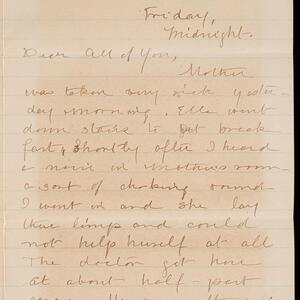 Friday,
Midnight.
Dear All of You,
Mother
was taken very sick yester-
day morning. Ella went
down stairs to put break
fast, shortly after I heard
a noise in Mothers room
a sort of choking sound
I went in and she lay
there limp and could
not help herself at all
The doctor got here
at about half-past